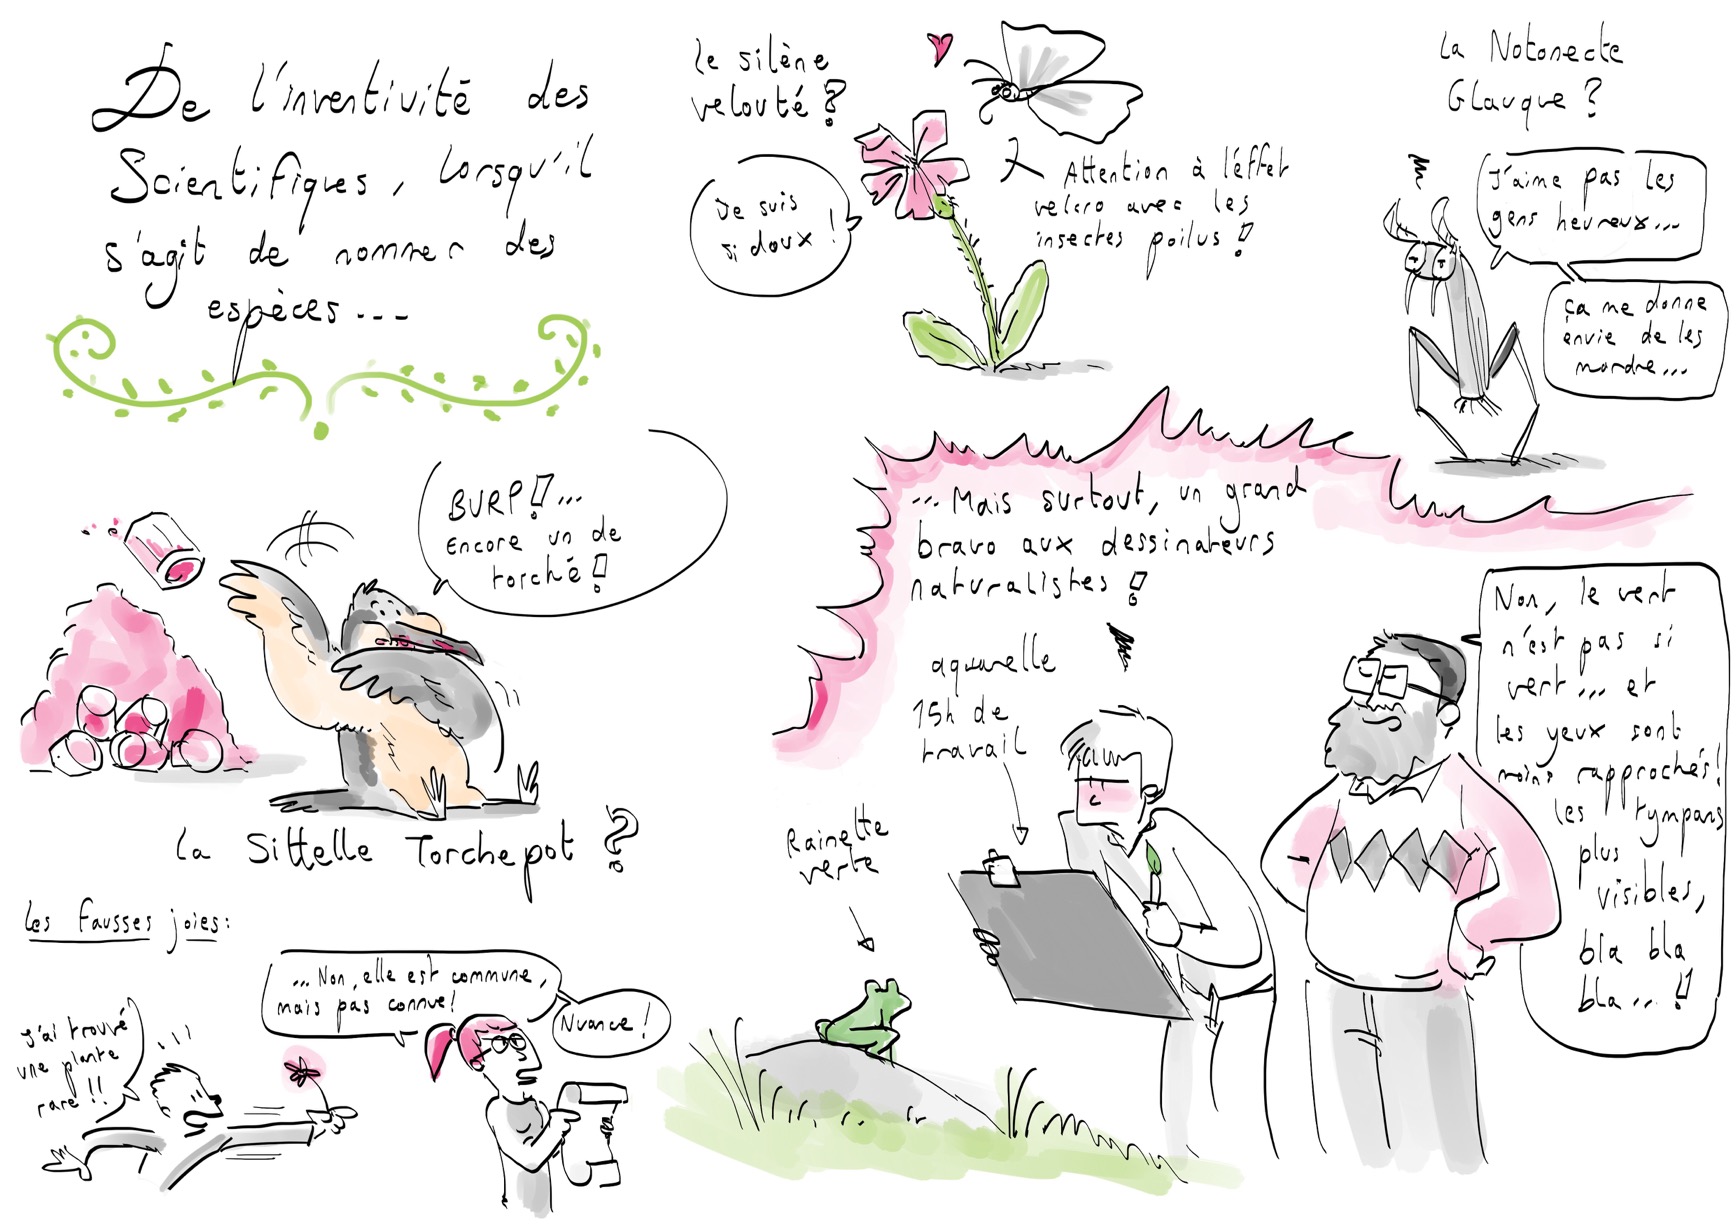 De l'inventivité des
Scientifiques, lorsqu'il
s'agit de nommer des
espèces...
le silène
velouté ?
Je suis
si doux !
Attention à l'effet
velcro avec les
insectes poilus !
la Notonecte
Glauque ?
J'aime pas les
gens heureux...
ça me donne
envie de les
mordre...
BURP !...
Encore un de
torché !
la Sittelle Torchepot ?
... Mais surtout, un grand
bravo aux dessinateurs
naturalistes !
aquarelle
15h de
travail
Rainette
verte
Non, le vert
n'est pas si
vert... et
les yeux sont
moins rapprochés !
les tympans
plus
visibles,
bla bla
bla... !
Les fausses joies :
J'ai trouvé
une plante
rare !!
... Non, elle est commune,
mais pas connue !
Nuance !